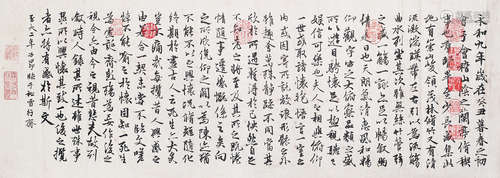 永和九年歲在癸丑暮春之初
會于會稽山陰之蘭亭脩禊
事也羣賢畢至少長咸集此
地有崇山峻領茂林脩竹又有清
流激湍暎帶左右引以為流觴
曲水列坐其次雖無絲竹管絃
之盛一觴一詠亦足以暢叙幽
情是日也天朗氣清惠風和暢
仰觀宇宙之大俯察品類之盛
所以遊目騁懷足以極視聽之
娛信可樂也夫人之相與俯仰
一世或取諸懷抱悟言一室之
內或因寄所託放浪形骸之外
雖趣舍萬殊靜躁不同當其
欣於所遇暫得於己快然自足
不知老之將至及其所之既惓
情隨事遷感慨係之矣向
之所欣俛仰之間以為陳迹猶
不能不以之興懷況脩短隨化
終期於盡古人云死生亦大矣
豈不痛哉每攬昔人興感之
由若合一契未嘗不臨文嗟
悼不能喻之於懷固知一死生
為虛誕齊彭殤為妄作後之
視今亦由今之視昔悲夫故列
叙時人錄其所述雖世殊事
異所以興懷其致一也後之攬
者亦將有感於斯文
二年子昂臨于松雪齋